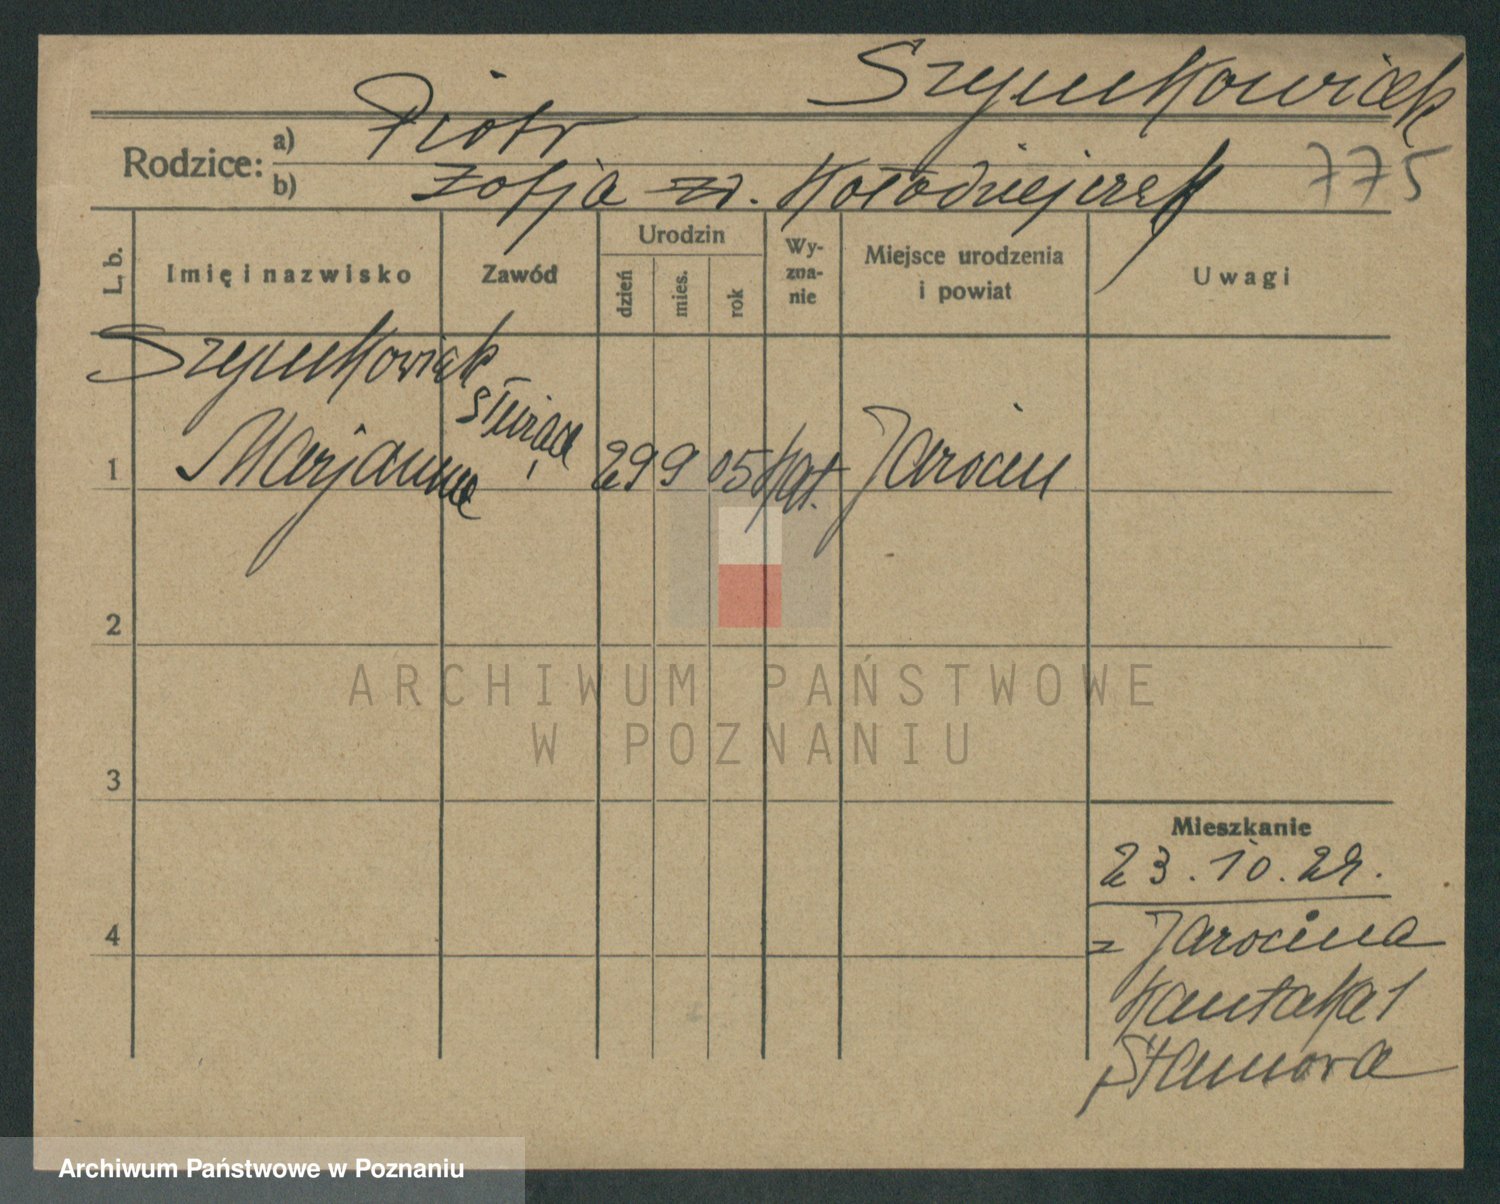 Szymkowiak
Rodzice: a) Piotr
b) Zofja zd. Kołodziejczak
775
L. b.
Imię i nazwisko
Zawód
Urodzin
dzień
mies.
rok
Wy-
zna-
nie
Miejsce urodzenia
i powiat
Uwagi
Szymkowiak
1 Marjanna służąca 29 9 05 kat. Jarocin
2
3
4
Mieszkanie
23.10.29.
z Jarocina
Kantaka 1
ARCHIWUM PAŃSTWOWE
W POZNANIU
Archiwum Państwowe w Poznaniu